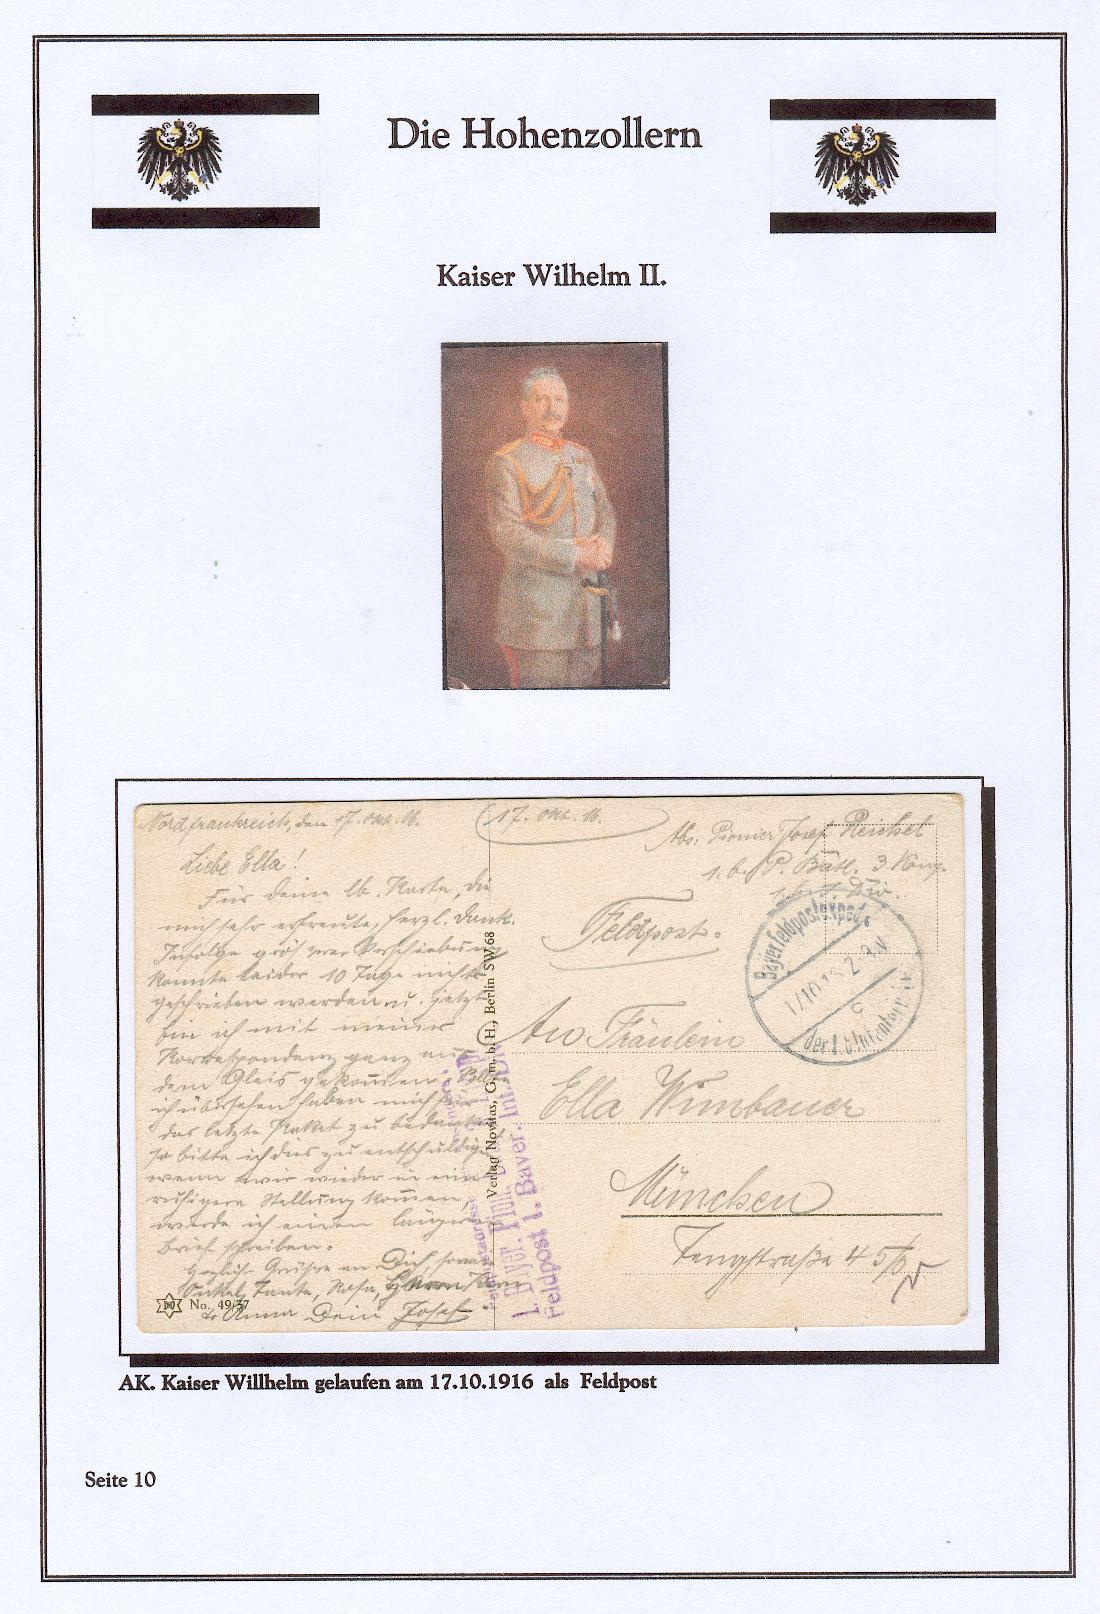 Die Hohenzollern
Kaiser Wilhelm II.
Nordfrankreich, den 17. Okt. 16.
Liebe Ella!
Für deine lb. Karte, die
mich sehr erfreute, herzl. Dank.
Infolge
konnte leider 10 Tage nichts
geschrieben werden u. jetzt
bin ich mit meiner
Korrespondenz ganz aus
dem Gleis gekommen.
ich übersehen haben mich für
das letzte Paket zu bedanken
so bitte ich dies zu entschuldigen
wenn wir wieder in eine
ruhigere Stellung kommen,
werde ich einen längeren
Brief schreiben.
Herzliche Grüsse an Dich, sowie
Onkel, Tante, Rosa,
Anna Dein Josef
No. 49/37
Verlag Novitas, G. m. b. H., Berlin SW 68
1. Bayer. Pion.
Feldpost 1. Bayer. Inf. Div.
17. Okt. 16.
Abs: Pionier Josef Reichel
1. b. P. Batl. 3 Komp.
1. b. J. Div.
Feldpost.
Bayer Feldpostexped.
der 1. b. Infanterie
An Fräulein
Ella Wimbauer
München
Tengstraße 45/0
AK. Kaiser Willhelm gelaufen am 17.10.1916 als Feldpost
Seite 10